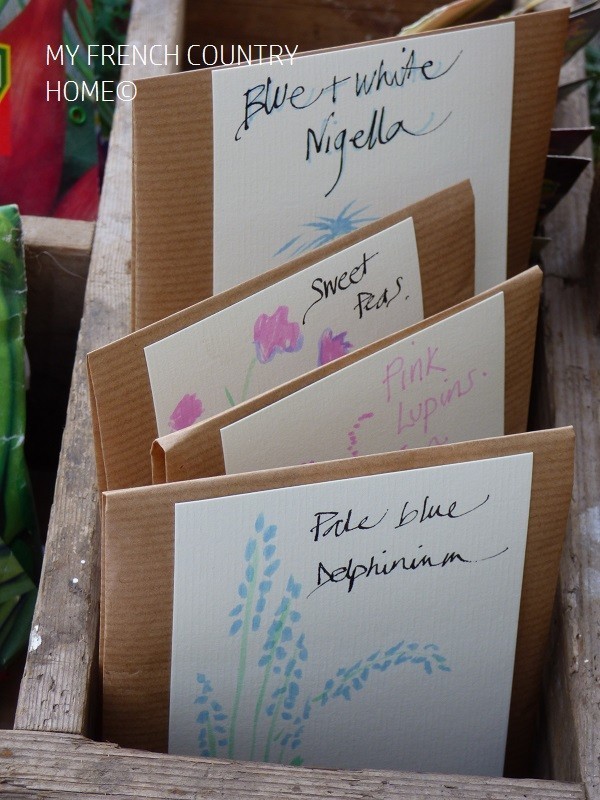 MY FRENCH COUNTRY
HOME©
Blue + white
Nigella
Sweet
Peas.
Pink
Lupins.
Pale blue
Delphinium